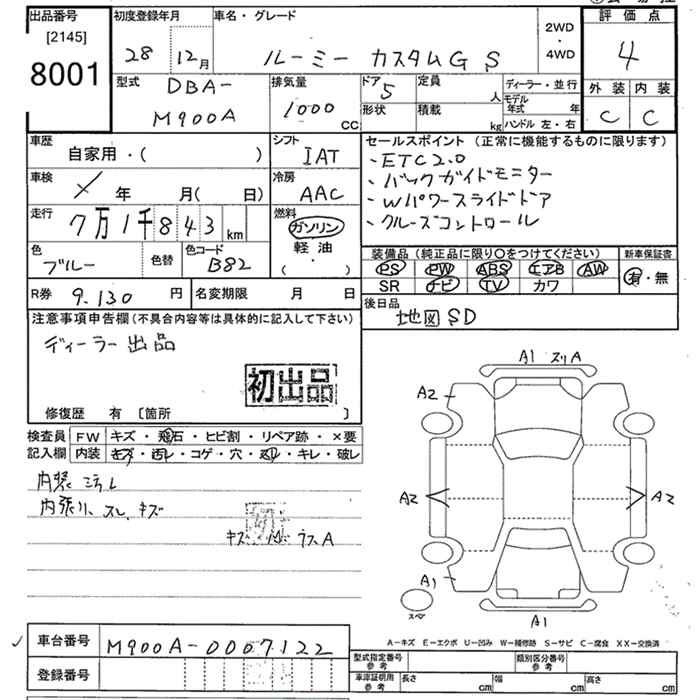 出品番号 初度登録年月 車名・グレード 評価点
[2145]
8001
28 12月 ルーミー カスタムG S 2WD・4WD 4
型式 DBA- 排気量 ドア 5 定員 人 ディーラー・並行 外装 内装
M900A 1000 cc 形状 積載 kg モデル年式 年 C C
ハンドル 左・右
車歴 自家用・( ) シフト IAT セールスポイント (正常に機能するものに限ります)
、ETC2.0
、バックガイドモニター
、Wパワースライドドア
、クルーズコントロール
車検 年 月( 日) 冷房 AAC
走行 7万1千843 km 燃料 ガソリン
軽油
( ・ )
色 ブルー 色替 色コード B82
装備品 (純正品に限り○をつけてください) 新車保証書
PS PW ABS エアB AW 有・無
SR ナビ TV カワ
R券 9.130 円 名変期限 月 日
後日品
地図 SD
注意事項申告欄(不具合内容等は具体的に記入して下さい)
ディーラー出品
初出品
修復歴 有 [箇所 ]
検査員 FW キズ・飛石・ヒビ割・リペア跡・×要
記入欄 内装 キズ・汚レ・コゲ・穴・スリ・キレ・破レ
内張り、スレ、キズ
A1 スリA
A2
A2 A2
A1
A1
スペア
A−キズ E−エクボ U−凹み W−補修跡 S−サビ C−腐食 XX−交換済
車台番号 M900A-0007122
登録番号
型式指定番号 参考 類別区分番号 参考
車庫証明用 参考 長さ cm 幅 cm 高さ cm